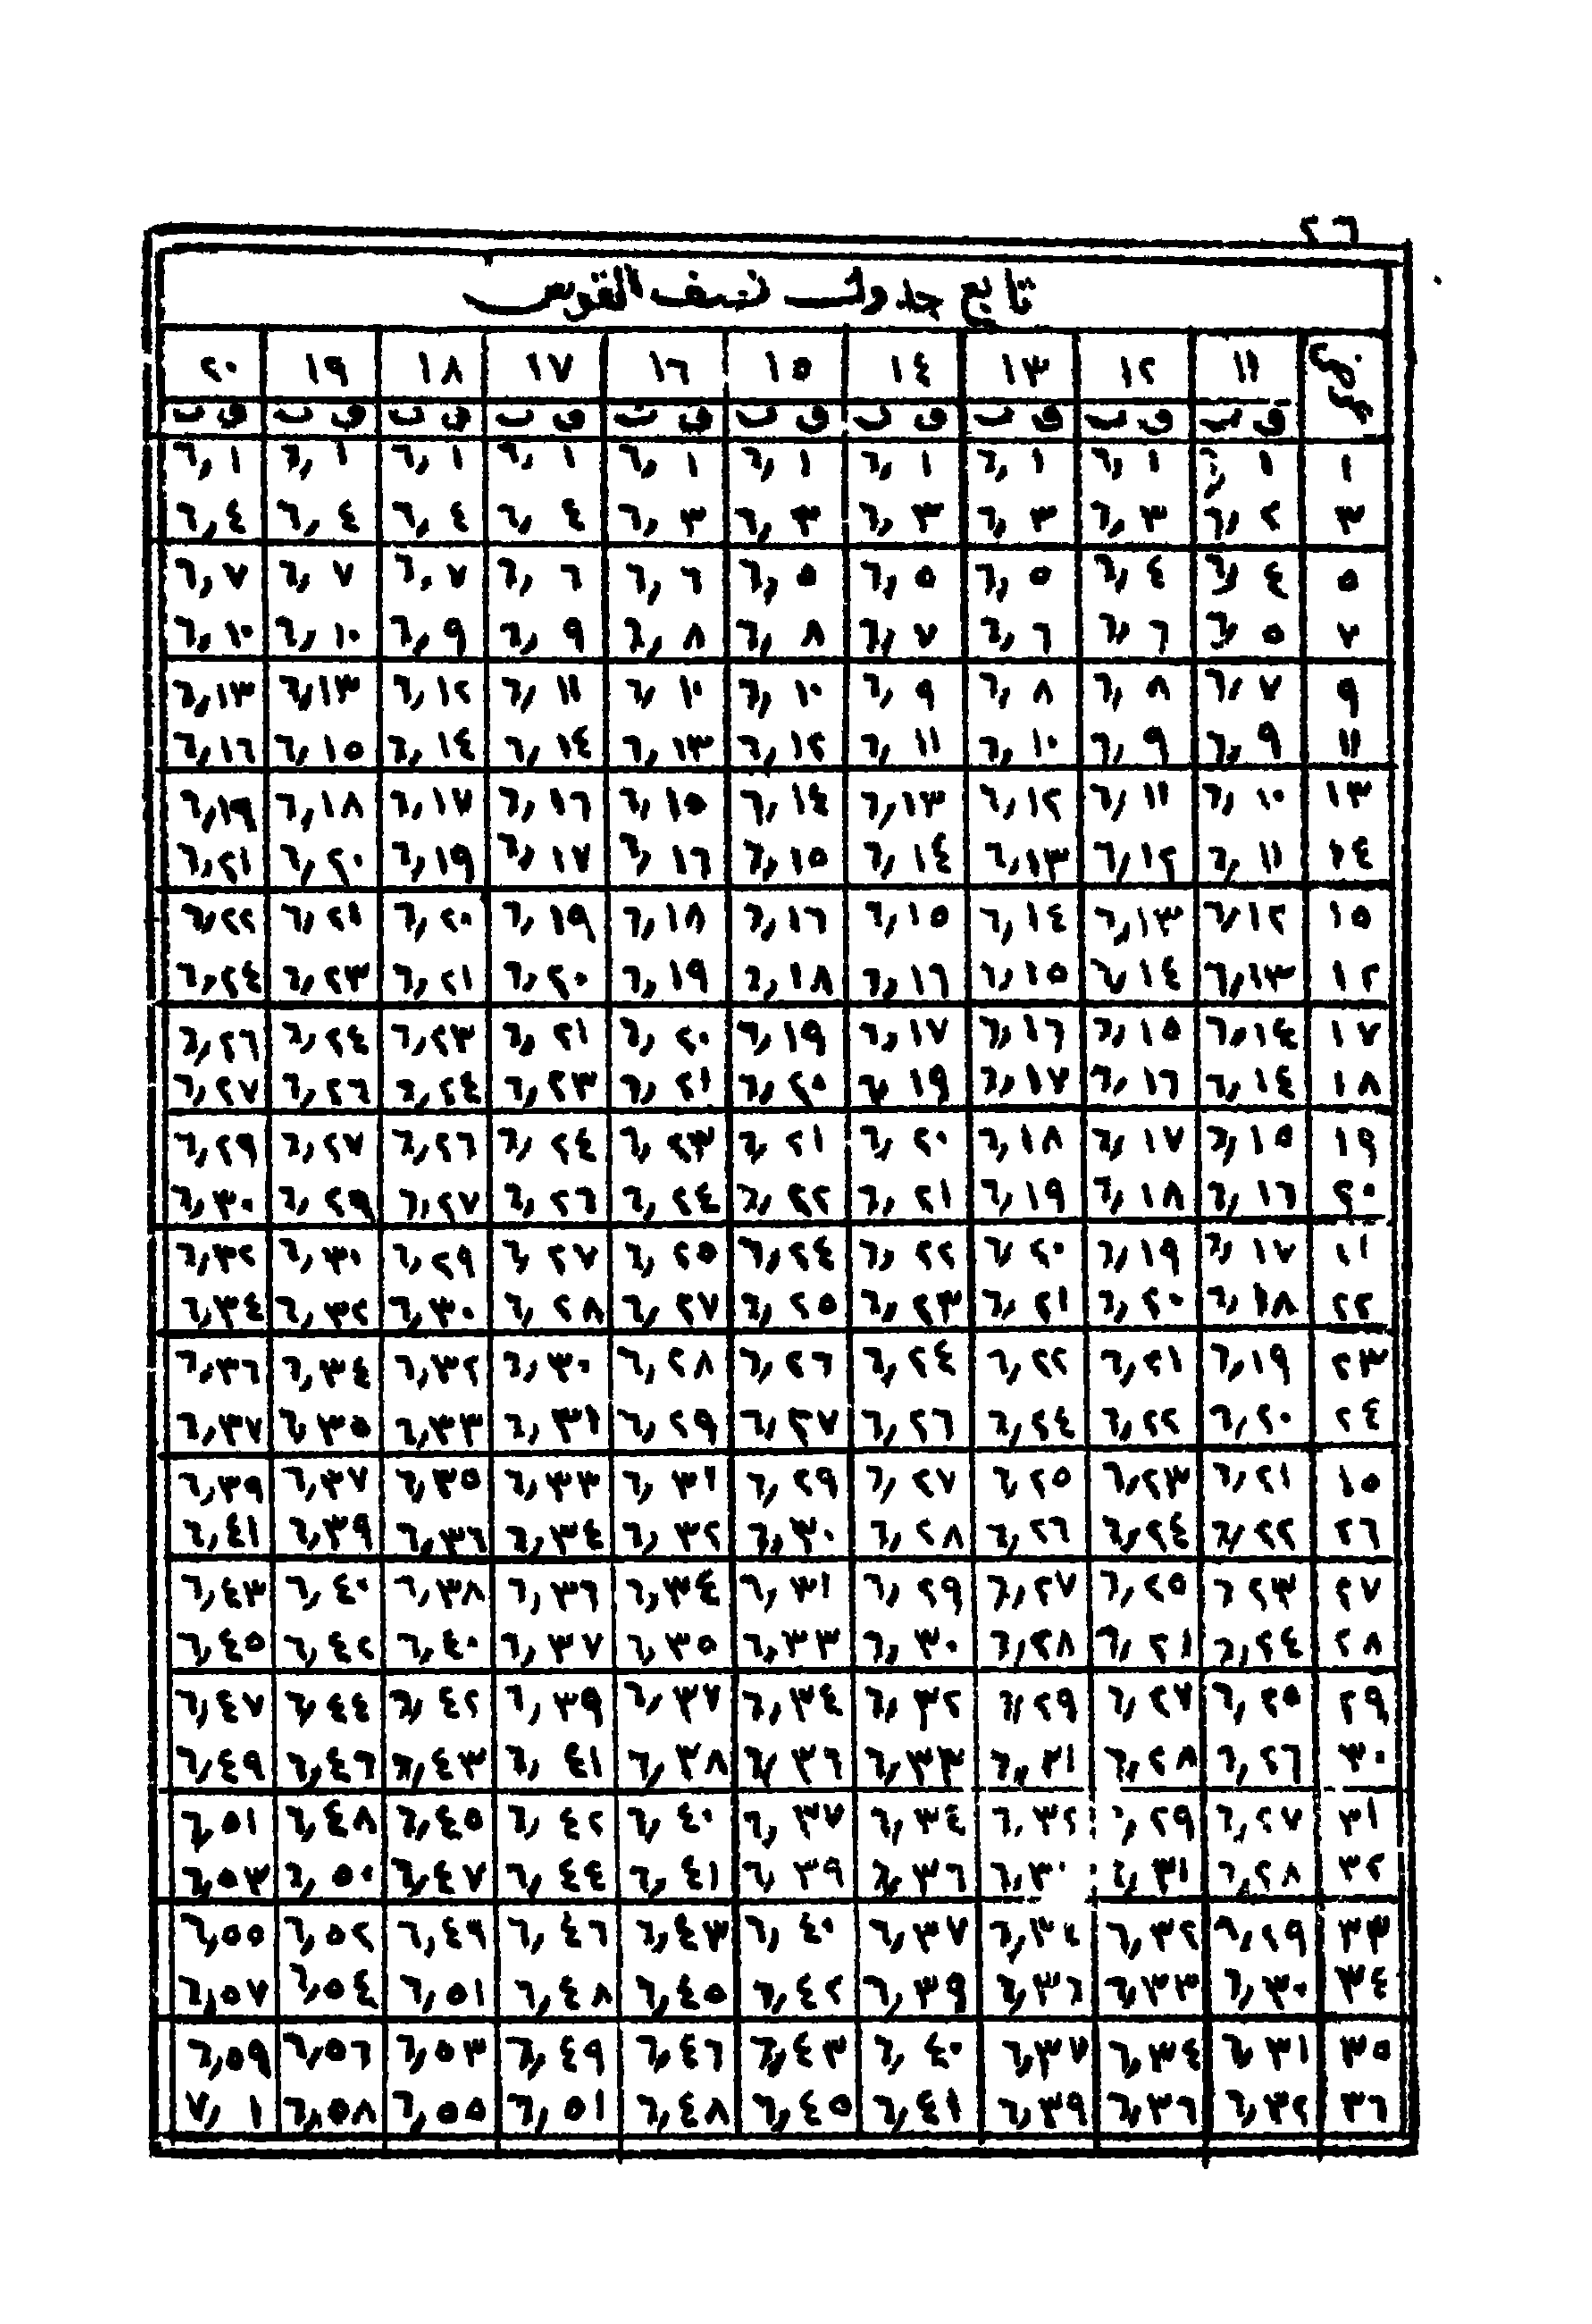 ٢٦
تابع جدول نصف القوس
١١ ١٢ ١٣ ١٤ ١٥ ١٦ ١٧ ١٨ ١٩ ٢٠
ق ت ق ت ق ت ق ت ق ت ق ت ق ت ق ت ق ت ق ت
١ ٦,١ ٦,١ ٦,١ ٦,١ ٦,١ ٦,١ ٦,١ ٦,١ ٦,١ ٦,١
٣ ٦,٢ ٦,٣ ٦,٣ ٦,٣ ٦,٣ ٦,٣ ٦,٤ ٦,٤ ٦,٤ ٦,٤
٥ ٦,٤ ٦,٤ ٦,٥ ٦,٥ ٦,٥ ٦,٦ ٦,٦ ٦,٧ ٦,٧ ٦,٧
٧ ٦,٥ ٦,٦ ٦,٦ ٦,٧ ٦,٨ ٦,٨ ٦,٩ ٦,٩ ٦,١٠ ٦,١٠
٩ ٦,٧ ٦,٨ ٦,٨ ٦,٩ ٦,١٠ ٦,١٠ ٦,١١ ٦,١٢ ٦,١٣ ٦,١٣
١١ ٦,٩ ٦,٩ ٦,١٠ ٦,١١ ٦,١٢ ٦,١٣ ٦,١٤ ٦,١٤ ٦,١٥ ٦,١٦
١٣ ٦,١٠ ٦,١١ ٦,١٢ ٦,١٣ ٦,١٤ ٦,١٥ ٦,١٦ ٦,١٧ ٦,١٨ ٦,١٩
١٤ ٦,١١ ٦,١٢ ٦,١٣ ٦,١٤ ٦,١٥ ٦,١٦ ٦,١٧ ٦,١٩ ٦,٢٠ ٦,٢١
١٥ ٦,١٢ ٦,١٣ ٦,١٤ ٦,١٥ ٦,١٦ ٦,١٨ ٦,١٩ ٦,٢٠ ٦,٢١ ٦,٢٢
١٢ ٦,١٣ ٦,١٤ ٦,١٥ ٦,١٦ ٦,١٨ ٦,١٩ ٦,٢٠ ٦,٢١ ٦,٢٣ ٦,٢٤
١٧ ٦,١٤ ٦,١٥ ٦,١٦ ٦,١٧ ٦,١٩ ٦,٢٠ ٦,٢١ ٦,٢٣ ٦,٢٤ ٦,٢٦
١٨ ٦,١٤ ٦,١٦ ٦,١٧ ٦,١٩ ٦,٢٠ ٦,٢١ ٦,٢٣ ٦,٢٤ ٦,٢٦ ٦,٢٧
١٩ ٦,١٥ ٦,١٧ ٦,١٨ ٦,٢٠ ٦,٢١ ٦,٢٣ ٦,٢٤ ٦,٢٦ ٦,٢٧ ٦,٢٩
٢٠ ٦,١٦ ٦,١٨ ٦,١٩ ٦,٢١ ٦,٢٢ ٦,٢٤ ٦,٢٦ ٦,٢٧ ٦,٢٩ ٦,٣٠
٢١ ٦,١٧ ٦,١٩ ٦,٢٠ ٦,٢٢ ٦,٢٤ ٦,٢٥ ٦,٢٧ ٦,٢٩ ٦,٣٠ ٦,٣٢
٢٢ ٦,١٨ ٦,٢٠ ٦,٢١ ٦,٢٣ ٦,٢٥ ٦,٢٧ ٦,٢٨ ٦,٣٠ ٦,٣٢ ٦,٣٤
٢٣ ٦,١٩ ٦,٢١ ٦,٢٢ ٦,٢٤ ٦,٢٦ ٦,٢٨ ٦,٣٠ ٦,٣٢ ٦,٣٤ ٦,٣٦
٢٤ ٦,٢٠ ٦,٢٢ ٦,٢٤ ٦,٢٦ ٦,٢٧ ٦,٢٩ ٦,٣١ ٦,٣٣ ٦,٣٥ ٦,٣٧
١٥ ٦,٢١ ٦,٢٣ ٦,٢٥ ٦,٢٧ ٦,٢٩ ٦,٣١ ٦,٣٣ ٦,٣٥ ٦,٣٧ ٦,٣٩
٢٦ ٦,٢٢ ٦,٢٤ ٦,٢٦ ٦,٢٨ ٦,٣٠ ٦,٣٢ ٦,٣٤ ٦,٣٦ ٦,٣٩ ٦,٤١
٢٧ ٦ ٢٣ ٦,٢٥ ٦,٢٧ ٦,٢٩ ٦,٣١ ٦,٣٤ ٦,٣٦ ٦,٣٨ ٦,٤٠ ٦,٤٣
٢٨ ٦,٢٤ ٦,٢١ ٦,٢٨ ٦,٣٠ ٦,٣٣ ٦,٣٥ ٦,٣٧ ٦,٤٠ ٦,٤٢ ٦,٤٥
٢٩ ٦,٢٥ ٦,٢٧ ٦,٢٩ ٦,٣٢ ٦,٣٤ ٦,٣٧ ٦,٣٩ ٦,٤٢ ٦,٤٤ ٦,٤٧
٣٠ ٦,٢٦ ٦,٢٨ ٦,٣١ ٦,٣٣ ٦,٣٦ ٦,٣٨ ٦,٤١ ٦,٤٣ ٦,٤٦ ٦,٤٩
٣١ ٦,٢٧ ٦,٢٩ ٦,٣٢ ٦,٣٤ ٦,٣٧ ٦,٤٠ ٦,٤٢ ٦,٤٥ ٦,٤٨ ٦,٥١
٣٢ ٦,٢٨ ٦,٣١ ٦,٣٦ ٦,٣٩ ٦,٤١ ٦,٤٤ ٦,٤٧ ٦,٥٠ ٦,٥٣
٣٣ ٦,٢٩ ٦,٣٢ ٦,٣٤ ٦,٣٧ ٦,٤٠ ٦,٤٣ ٦,٤٦ ٦,٤٩ ٦,٥٢ ٦,٥٥
٣٤ ٦,٣٠ ٦,٣٣ ٦,٣٦ ٦,٣٩ ٦,٤٢ ٦,٤٥ ٦,٤٨ ٦,٥١ ٦,٥٤ ٦,٥٧
٣٥ ٦,٣١ ٦,٣٤ ٦,٣٧ ٦,٤٠ ٦,٤٣ ٦,٤٦ ٦,٤٩ ٦,٥٣ ٦,٥٦ ٦,٥٩
٣٦ ٦,٣٢ ٦,٣٦ ٦,٣٩ ٦,٤١ ٦,٤٥ ٦,٤٨ ٦,٥١ ٦,٥٥ ٦,٥٨ ٧,١